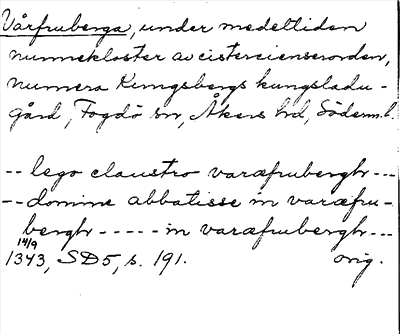 Vårfruberga, under medeltiden
nunnekloster av cistercienserorden,
numera Kungsbergs kungsladu-
gård, Fogdö sn, Åkers hd, Söderm.l.
-- lego claustro varæfrubergh ---
-- domine abbatisse in varæfru-
bergh ----- in varæfrubergh ---
14/9
1343, SD5, s. 191. orig.